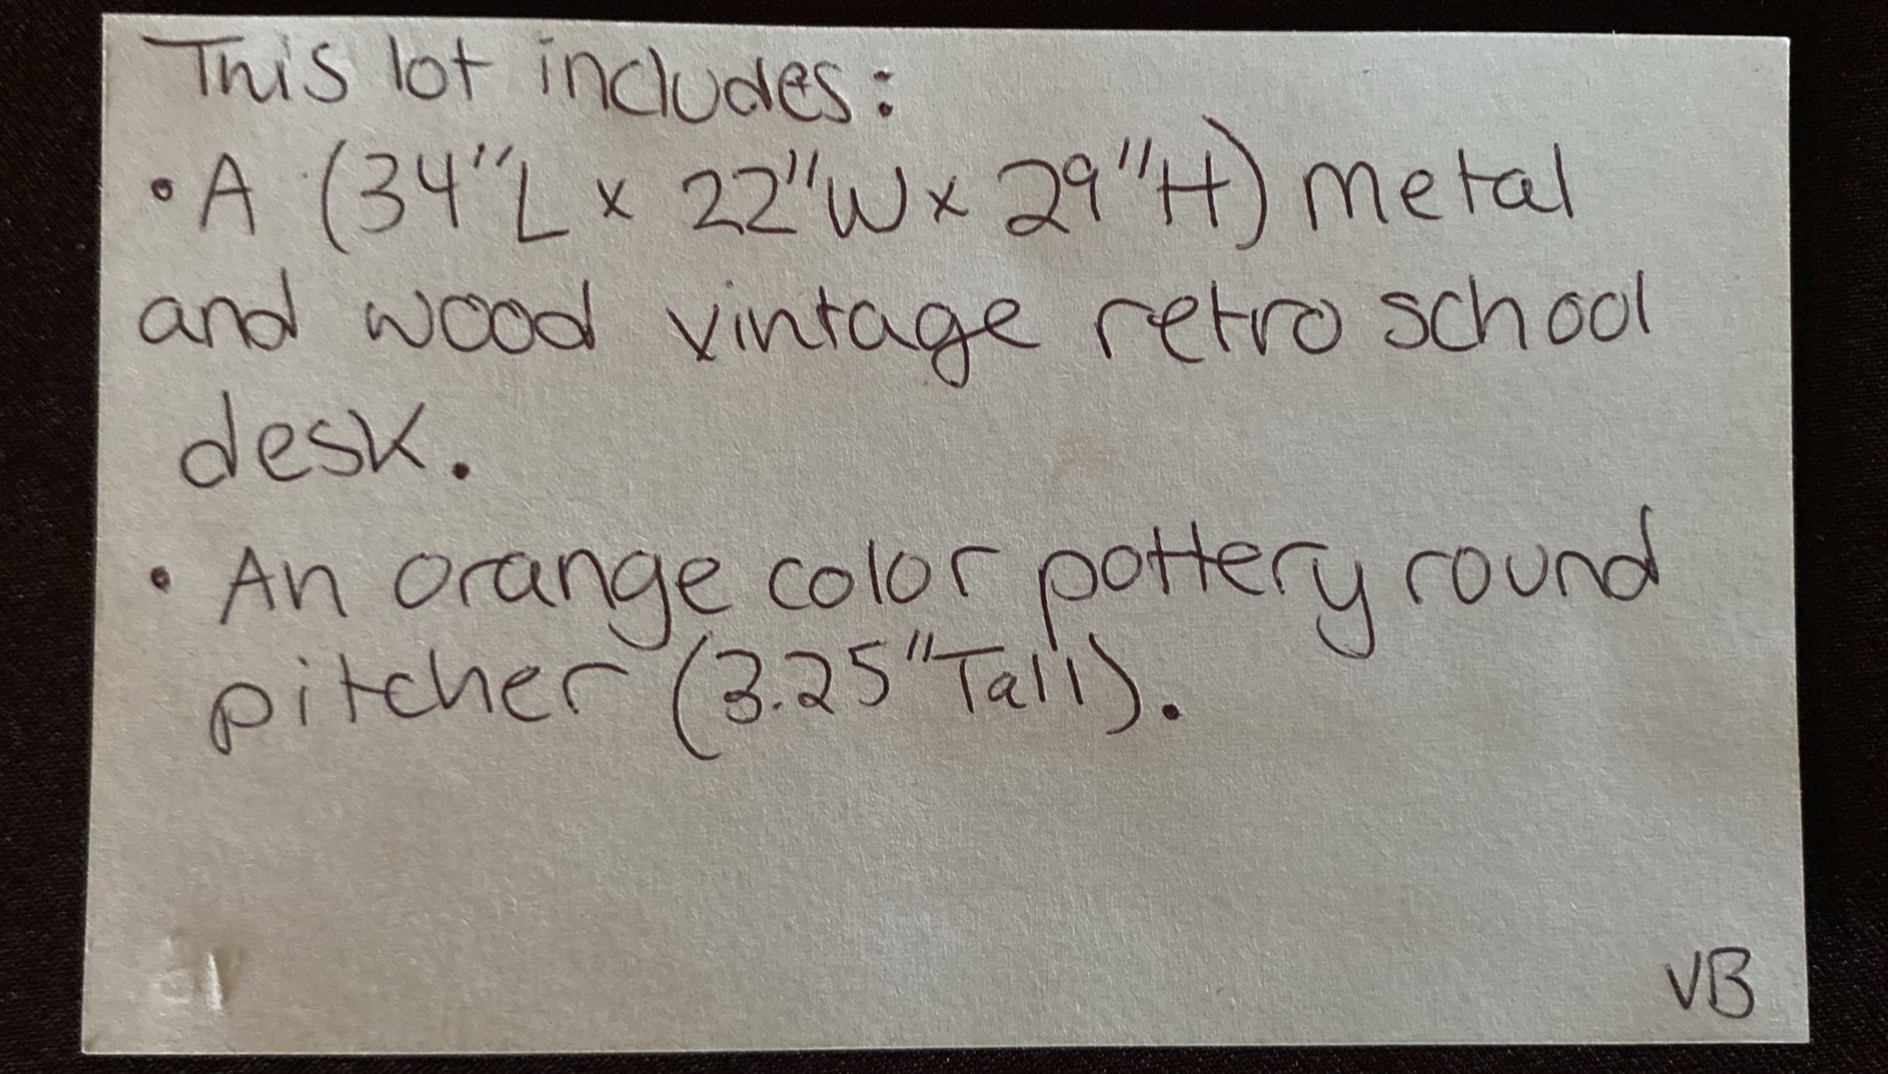 This lot includes:
• A (34"L x 22"W x 29"H) metal
and wood vintage retro school
desk.
• An orange color pottery round
pitcher (3.25" Tall).
VB